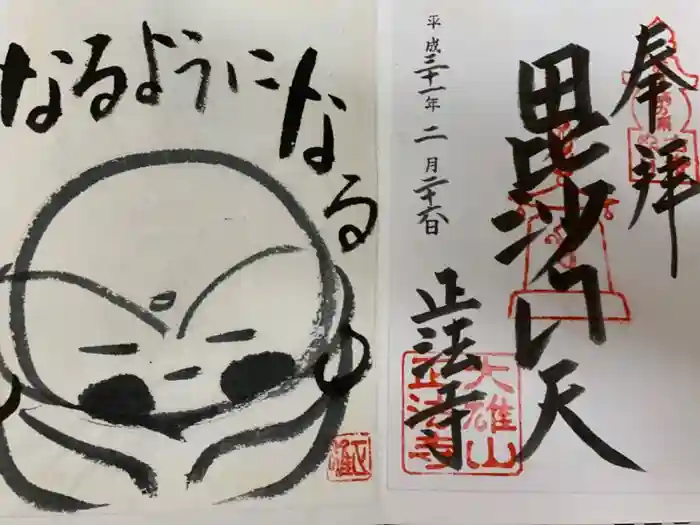 奉拝
毘沙門天
正法寺
平成三十一年二月二十六日
大雄山
正法寺
なるようになる